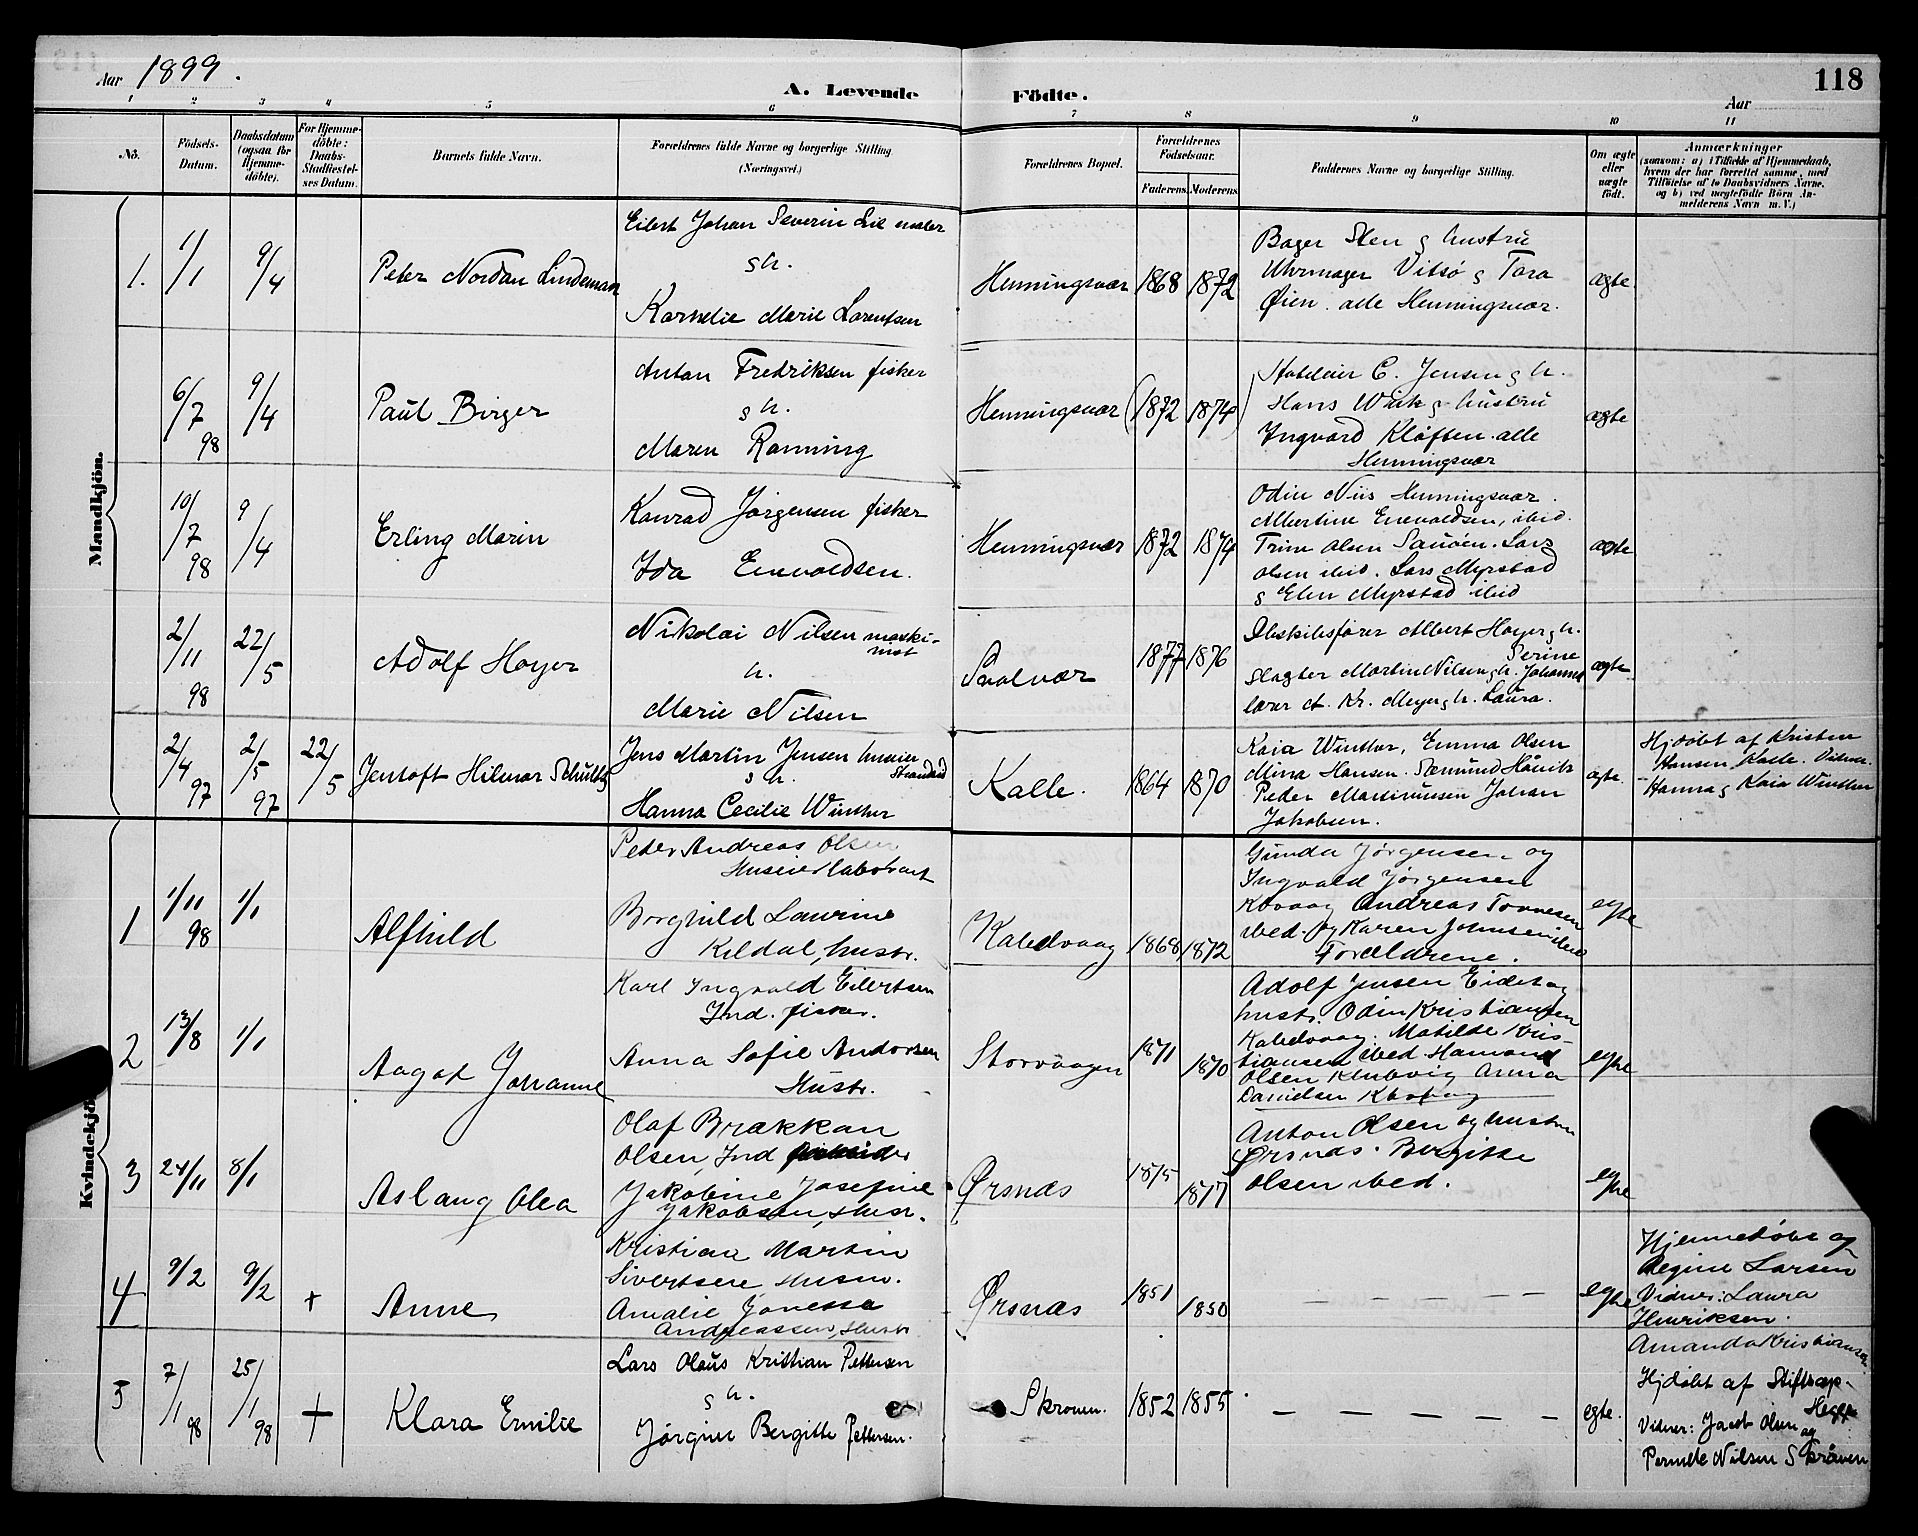 Aar 1899.
A. Levende Födte.
118
Aar
1 2 3 4 5 6 7 8 9 10 11
No.
Födsels-
Datum.
Daabsdatum
(ogsaa for
Hjemme-
döbte).
For Hjemme-
döbte:
Daabs-
Stadfæstel-
ses Datum.
Barnets fulde Navn.
Forældrenes fulde Navne og borgerlige Stilling
(Næringsvei.)
Forældrenes Bopæl.
Forældrenes
Födselsaar.
Faderens. Moderens.
Faddernes Navne og borgerlige Stilling.
Om ægte
eller
uægte
födt.
Anmærkninger
(saasom: a) i Tilfælde af Hjemmedaab,
hvem der har forrettet samme, med
Tilföielse af to Daabsvidners Navne,
og b) ved uægtefödte Börn An-
melderens Navn m. V.)
Mandkjön.
1. 1/1 9/4
Peter Nordan Lindeman
Eilert Johan Severin Lie maler
g h.
Kornelie Marie Lorentsen
Henningsvær 1868 1872
Bager Sten g hustru
Uhrmager Vitsø g Tora
Øien. alle Henningsvær.
ægte
6/7 98 9/4
Paul Birger
Anton Fredriksen fisker
g h.
Maren Rønning
Henningsvær (1872 1874)
C. Jensen g h.
Hans g hustru
Ingvard Kløften. alle
Henningsvær
ægte
10/7 98 9/4
Erling Marin
Konrad Jørgensen fisker
Ida Enevoldsen.
Henningsvær 1872 1874
Odin Niis Henningsvær.
Albertine Enevoldsen, ibid.
Trine Olsen Sauøen. Lars
Olsen ibid. Lars Myrstad
g Elen Myrstad ibid
ægte
2/11 98 22/5
Adolf Hoyer
Nikolai Nilsen maski-
nist
h.
Marie Nilsen
Svolvær 1877 1876
Albert Hoyer g h.
Serine
Slagter Martin Nilsen g h. Johanna
lærer A. Kr. Meyer g h. Laura.
ægte
2/4 97 2/5 97 22/5
Jentoft Hilmar Schultz
Jens Martin Jensen huseier
Strandsid
g h.
Hanna Cecilie Winther
Kalle. 1864 1870
Kaia Winther, Emma Olsen
Mina Hansen. Sæmund
Peder Martinussen Johan
Jakobsen.
ægte.
Hjdøbt af Kristen
Hansen Kalle. Vidner.
Hanna g Kaia Winther
Kvindekjö
1 1/11 98 1/1
Alfhild
Peder Andreas Olsen
Huseier & laborant
Borghild Laurine
Kildal, hustr.
Kabelvaag 1868 1872
Gunda Jørgensen og
Ingvald Jørgensen
Kbvaag Andreas Tønnesen
ibed. og Karen Johnsen ibed
Forældrene.
egte
2 13/8 1/1
Aagot Johanne
Karl Ingvald Eilertsen
Ind. fisker.
Anna Sofie Andorsen
Hustr.
Storvaagen 1871 1870
Adolf Jensen Eidet og
hustr. Odin Kristiansen
Kabelvaag. Matilde Kris-
tiansen ibed. Hamond
Olsen Anna
Danielsen Kbvaag
egte
3 24/11 8/1
Aslaug Olea
Olaf Brækkan
Olsen, Ind
Jakobine Josefine
Jakobsen, Hustr.
Ørsnæs 1875 1877
Anton Olsen og hustru
Ørsnæs. Bergitte
Olsen ibed.
egte
4 9/2 9/2 +
Anne
Kristian Martin
Sivertsen, Husm.
Amalie Janessa
Andreassen, Hustr.
Ørsnæs 1851 1850
— — — — —
egte
Hjemmedøbt af
Regine Larsen
Vidner: Laura
Henriksen.
Amanda Kristiansen
5 7/1 98 25/1 98 +
Klara Emilie
Lars Olaus Kristian Pettersen
g h.
Jørgine Bergitte Pettersen.
Skroven. 1852 1855
— — — — —
egte.
Hjdøbt af Stiftscap.
Hegge
Vidner: Olsen
og
Pernille Nilsen Skroven